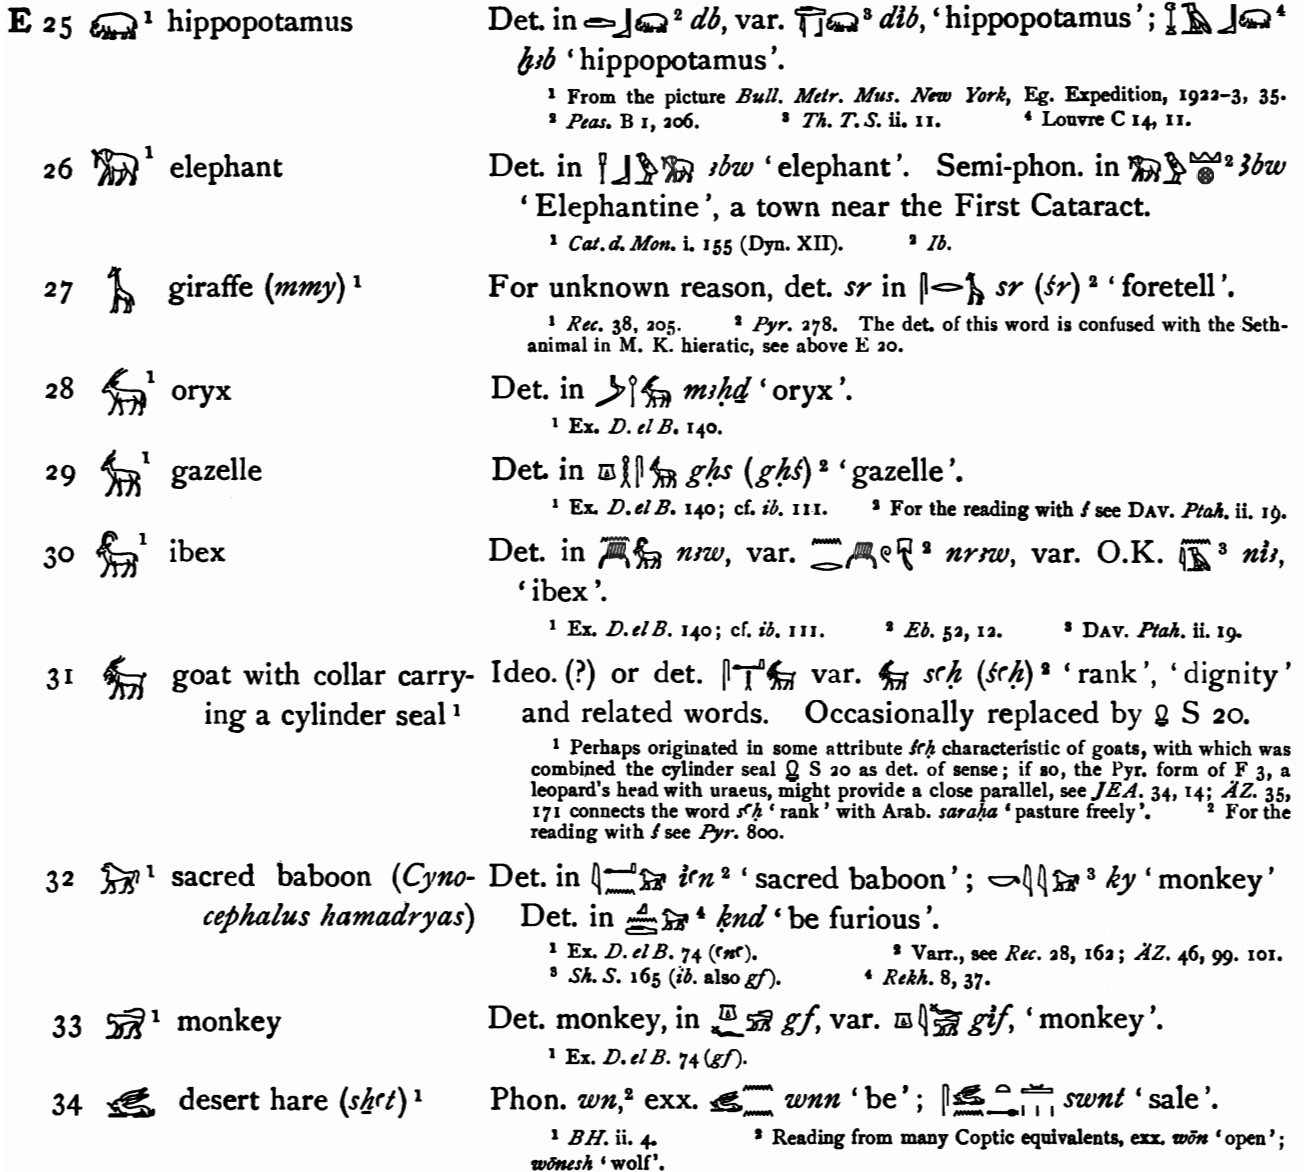 E 25 𓃯¹ hippopotamus Det. in 𓂧𓃀𓃯² db, var. 𓃯³ dỉb, ‘hippopotamus’; 𓆼𓄿𓃀𓃯⁴
ḫꜣb ‘hippopotamus’.
¹ From the picture Bull. Metr. Mus. New York, Eg. Expedition, 1922–3, 35.
² Peas. B 1, 206. ³ Th. T.S. ii. 11. ⁴ Louvre C 14, 11.
26 𓃰¹ elephant Det. in 𓍋𓃀𓅱𓃰 ꜣbw ‘elephant’. Semi-phon. in 𓃰𓅱𓈉𓊖² Ꜣbw
‘Elephantine’, a town near the First Cataract.
¹ Cat. d. Mon. i. 155 (Dyn. XII). ² Ib.
27 𓃱 giraffe (mmy)¹ For unknown reason, det. sr in 𓋴𓂋𓃱 sr (śr)² ‘foretell’.
¹ Rec. 38, 205. ² Pyr. 278. The det. of this word is confused with the Seth-
animal in M. K. hieratic, see above E 20.
28 𓃲¹ oryx Det. in 𓌳𓌉𓃲 mꜣḥḏ ‘oryx’.
¹ Ex. D. el B. 140.
29 𓃴¹ gazelle Det. in 𓎼𓎛𓋴𓃴 gḥs (gḥś)² ‘gazelle’.
¹ Ex. D. el B. 140; cf. ib. 111. ² For the reading with ś see DAV. Ptah. ii. 19.
30 𓃵¹ ibex Det. in 𓃵 nꜣw, var. ² nrꜣw, var. O.K. 𓈖𓇋𓄿³ nỉꜣ,
‘ibex’.
¹ Ex. D. el B. 140; cf. ib. 111. ² Eb. 52, 12. ³ DAV. Ptah. ii. 19.
31 𓃶 goat with collar carry- Ideo. (?) or det. 𓃶 var. 𓃶 sꜥḥ (śꜥḥ)² ‘rank’, ‘dignity’
ing a cylinder seal¹ and related words. Occasionally replaced by 𓋩 S 20.
¹ Perhaps originated in some attribute śꜥḥ characteristic of goats, with which was
combined the cylinder seal 𓋩 S 20 as det. of sense; if so, the Pyr. form of F 3, a
leopard's head with uraeus, might provide a close parallel, see JEA. 34, 14; ÄZ. 35,
171 connects the word sꜥḥ ‘rank’ with Arab. saraḥa ‘pasture freely’. ² For the
reading with ś see Pyr. 800.
32 𓃷¹ sacred baboon (Cyno- Det. in 𓇋𓂝𓈖𓃷 ỉꜥn² ‘sacred baboon’; 𓎡𓇋𓇋𓃷³ ky ‘monkey’
cephalus hamadryas) Det. in 𓈎𓈖𓂧𓃷⁴ ḳnd ‘be furious’.
¹ Ex. D. el B. 74 (ꜥnꜥ). ² Varr., see Rec. 28, 162; ÄZ. 46, 99. 101.
³ Sh. S. 165 (ib. also gf). ⁴ Rekh. 8, 37.
33 𓃸¹ monkey Det. monkey, in 𓎼𓆑𓃸 gf, var. 𓎼𓇋𓆑𓃸 gỉf, ‘monkey’.
¹ Ex. D. el B. 74 (gf).
34 𓃹 desert hare (sẖꜥt)¹ Phon. wn,² exx. 𓃹𓈖𓈖 wnn ‘be’; 𓋴𓃹𓈖𓏏 swnt ‘sale’.
¹ BH. ii. 4. ² Reading from many Coptic equivalents, exx. wōn ‘open’;
wōnesh ‘wolf’.